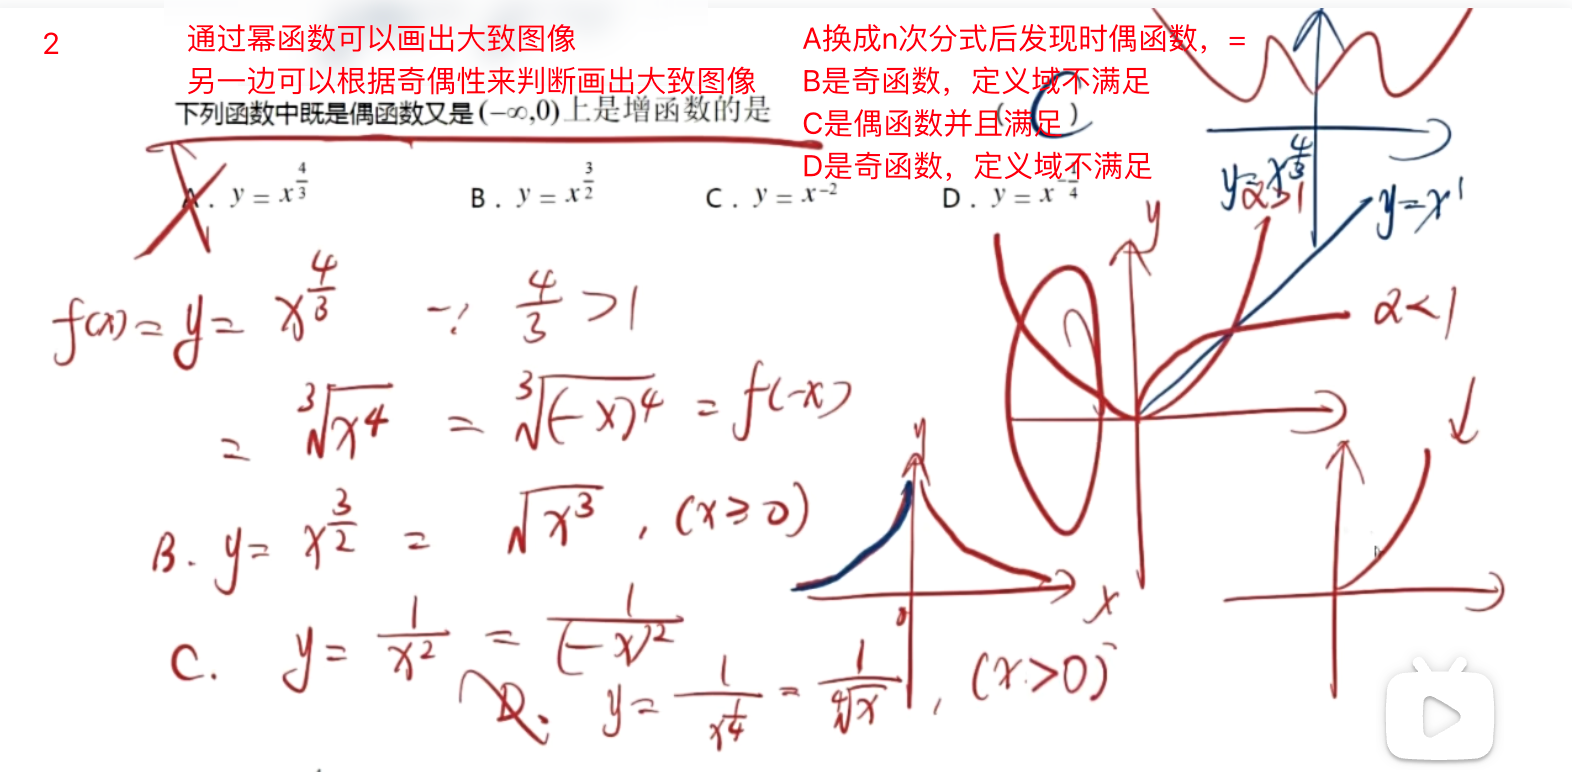 2
通过幂函数可以画出大致图像
另一边可以根据奇偶性来判断画出大致图像
A换成n次分式后发现时偶函数，=
B是奇函数，定义域不满足
C是偶函数并且满足
D是奇函数，定义域不满足
下列函数中既是偶函数又是(−∞,0)上是增函数的是 ( C )
A． y = x^{4/3} B． y = x^{3/2} C． y = x^{-2} D． y = x^{-1/4}
y=x^{4/3}
α>1
y=x^1
y
α<1
f(x) = y = x^{4/3} ∵ 4/3 > 1
= ∛x^4 = ∛(-x)^4 = f(-x)
B. y = x^{3/2} = √x^3 , (x≥0)
y
x
0
C. y = 1/x^2 = 1/(-x)^2
D. y = 1/x^{1/4} = 1/∜x , (x>0)